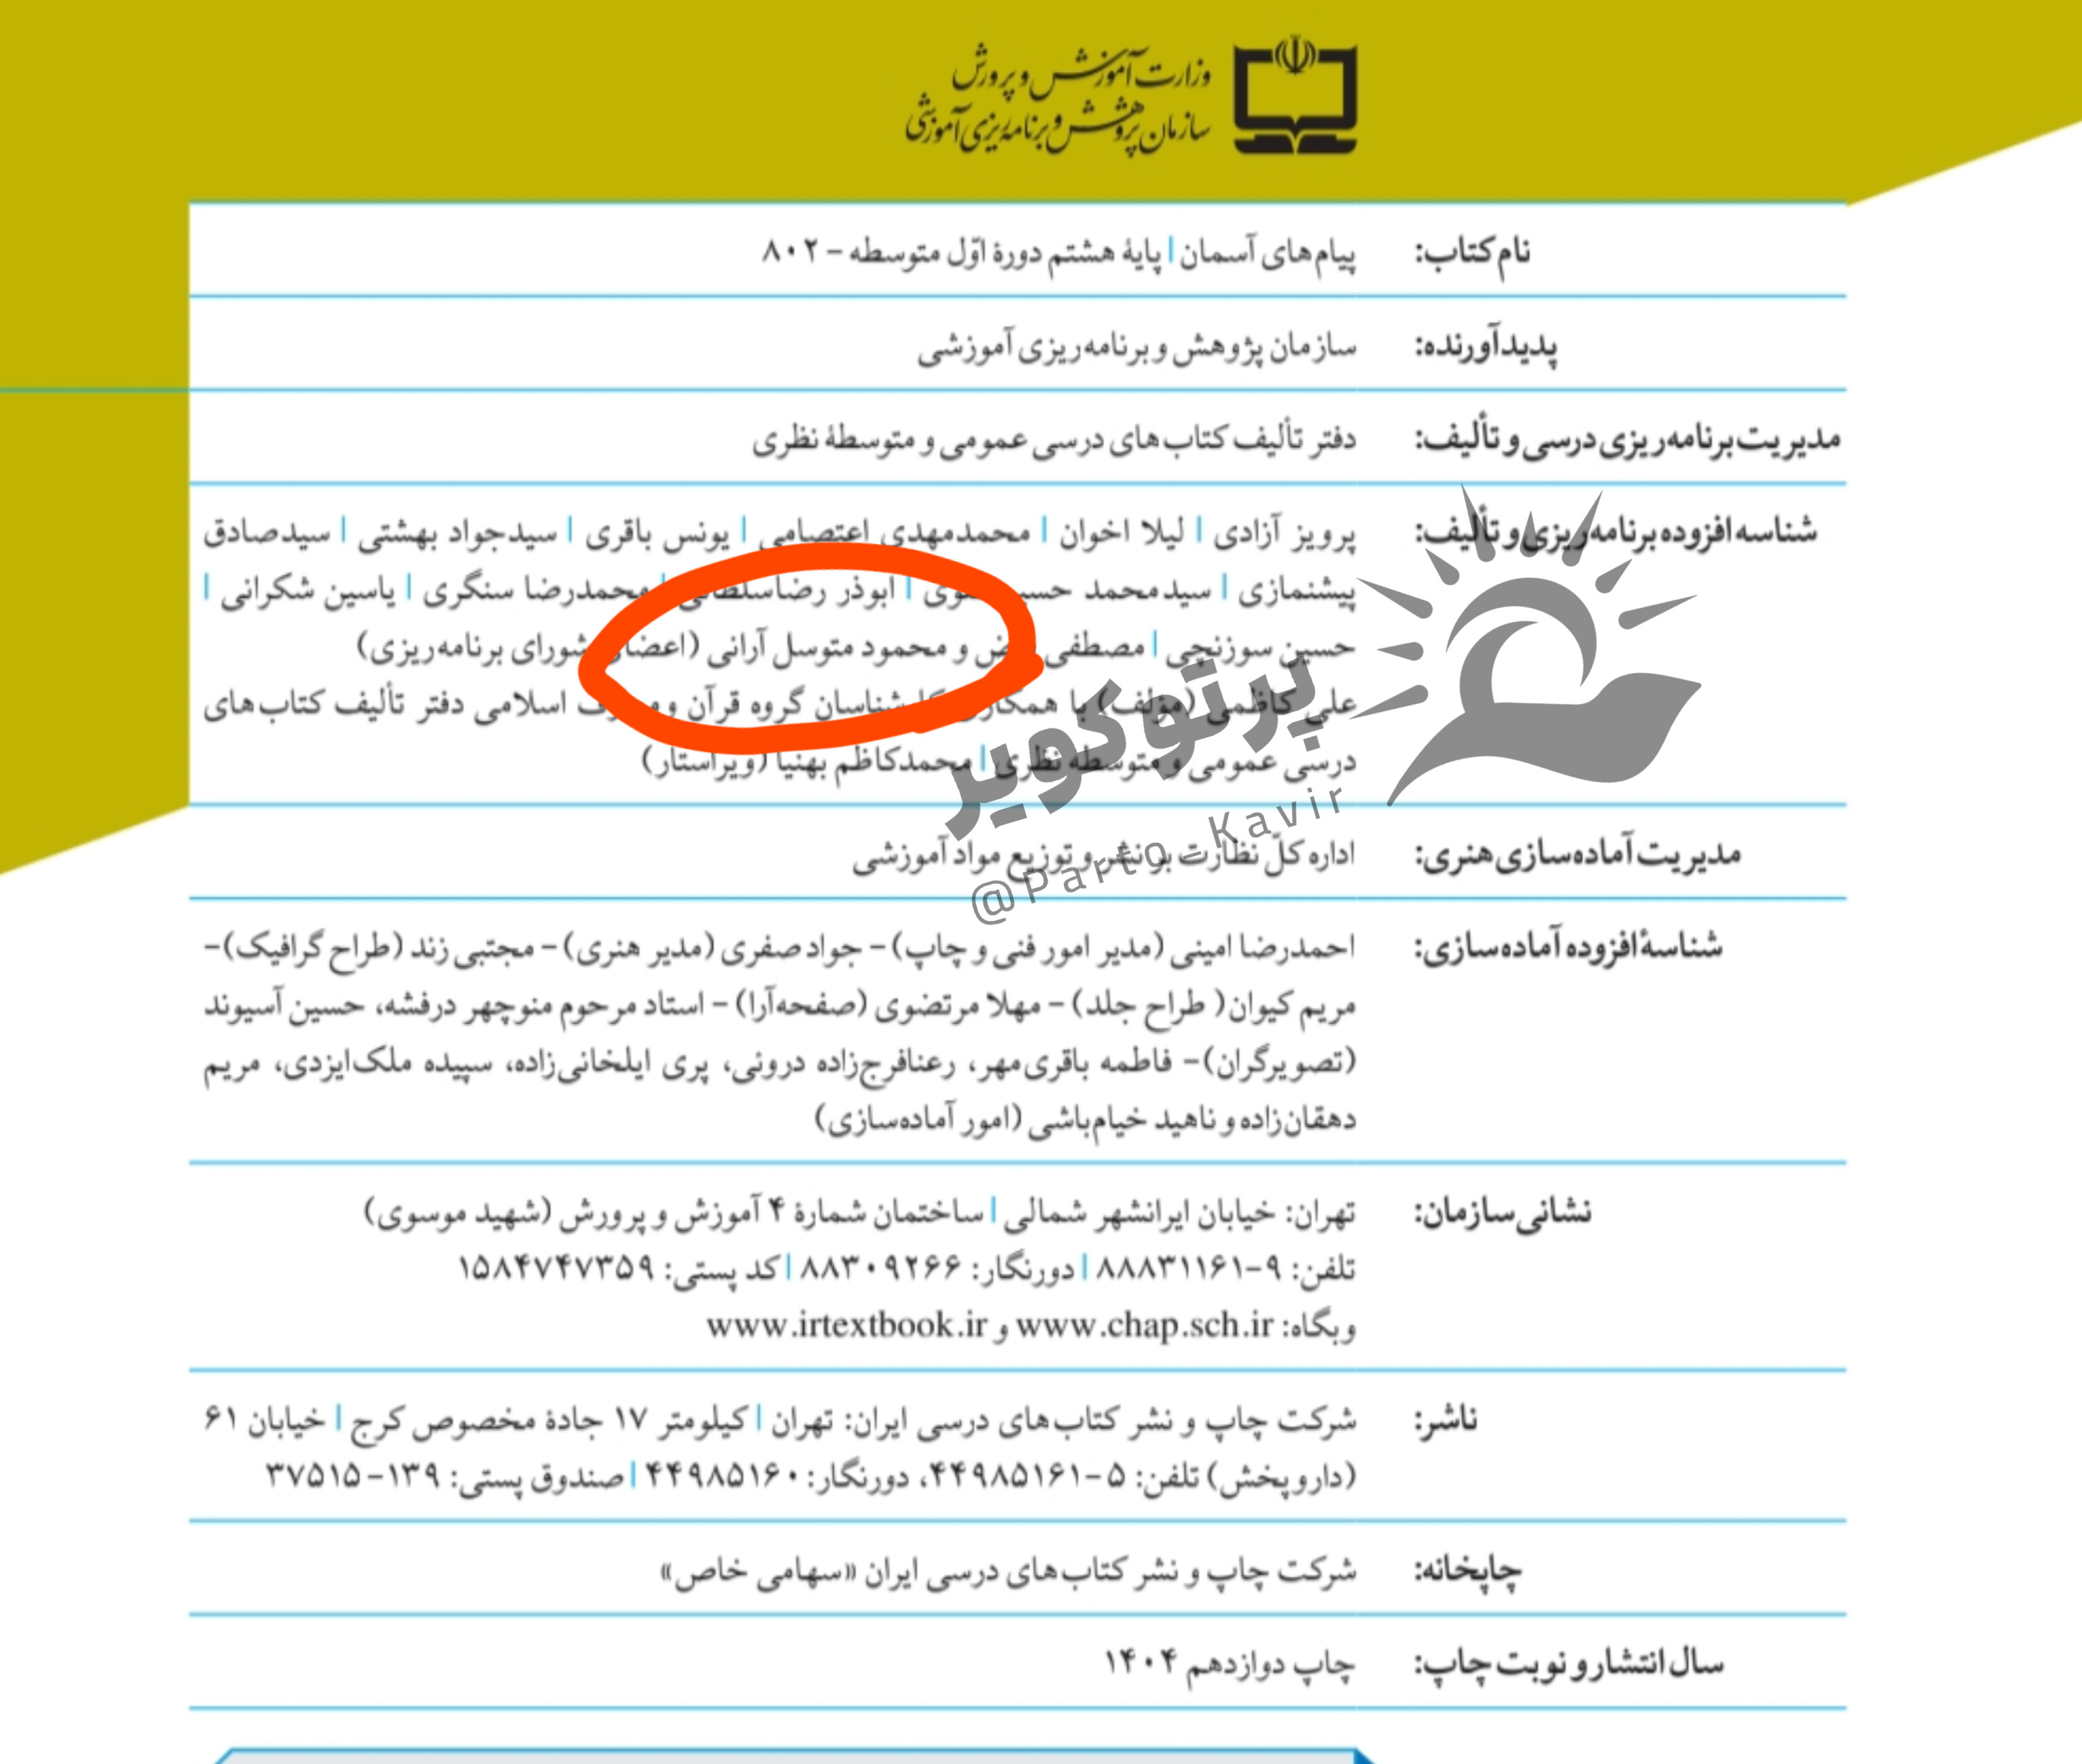 وزارت آموزش و پرورش
سازمان پژوهش و برنامه‌ریزی آموزشی
نام کتاب: پیام‌های آسمان | پایهٔ هشتم دورهٔ اوّل متوسطه – ۸۰۲
پدیدآورنده: سازمان پژوهش و برنامه‌ریزی آموزشی
مدیریت برنامه‌ریزی درسی و تألیف: دفتر تألیف کتاب‌های درسی عمومی و متوسطهٔ نظری
شناسه افزوده برنامه‌ریزی و تألیف: پرویز آزادی | لیلا اخوان | محمدمهدی اعتصامی | یونس باقری | سیدجواد بهشتی | سیدصادق
پیشنمازی | سیدمحمد | ابوذر رضاسلطانی | محمدرضا سنگری | یاسین شکرانی |
حسین سوزنچی | مصطفی و محمود متوسل آرانی (اعضای شورای برنامه‌ریزی)
علی کاظمی (مؤلف) با همکاری کارشناسان گروه قرآن و اسلامی دفتر تألیف کتاب‌های
درسی عمومی و متوسطه نظری | محمدکاظم بهنیا (ویراستار)
پرتو کویر
@Parto_Kavir
مدیریت آماده‌سازی هنری: اداره کلّ نظارت بر نشر و توزیع مواد آموزشی
شناسهٔ افزوده آماده‌سازی: احمدرضا امینی (مدیر امور فنی و چاپ) – جواد صفری (مدیر هنری) – مجتبی زند (طراح گرافیک) –
مریم کیوان( طراح جلد) – مهلا مرتضوی (صفحه‌آرا) – استاد مرحوم منوچهر درفشه، حسین آسیوند
(تصویرگران)– فاطمه باقری‌مهر، رعنافرج‌زاده درونی، پری ایلخانی‌زاده، سپیده ملک‌ایزدی، مریم
دهقان‌زاده و ناهید خیام‌باشی (امور آماده‌سازی)
نشانی سازمان: تهران: خیابان ایرانشهر شمالی | ساختمان شمارهٔ ۴ آموزش و پرورش (شهید موسوی)
تلفن: ۹-۸۸۸۳۱۱۶۱ | دورنگار: ۸۸۳۰۹۲۶۶ | کد پستی: ۱۵۸۴۷۴۷۳۵۹
وبگاه: www.chap.sch.ir و www.irtextbook.ir
ناشر: شرکت چاپ و نشر کتاب‌های درسی ایران: تهران | کیلومتر ۱۷ جادهٔ مخصوص کرج | خیابان ۶۱
(داروپخش) تلفن: ۵-۴۴۹۸۵۱۶۱، دورنگار: ۴۴۹۸۵۱۶۰ | صندوق پستی: ۱۳۹-۳۷۵۱۵
چاپخانه: شرکت چاپ و نشر کتاب‌های درسی ایران «سهامی خاص»
سال انتشار و نوبت چاپ: چاپ دوازدهم ۱۴۰۴